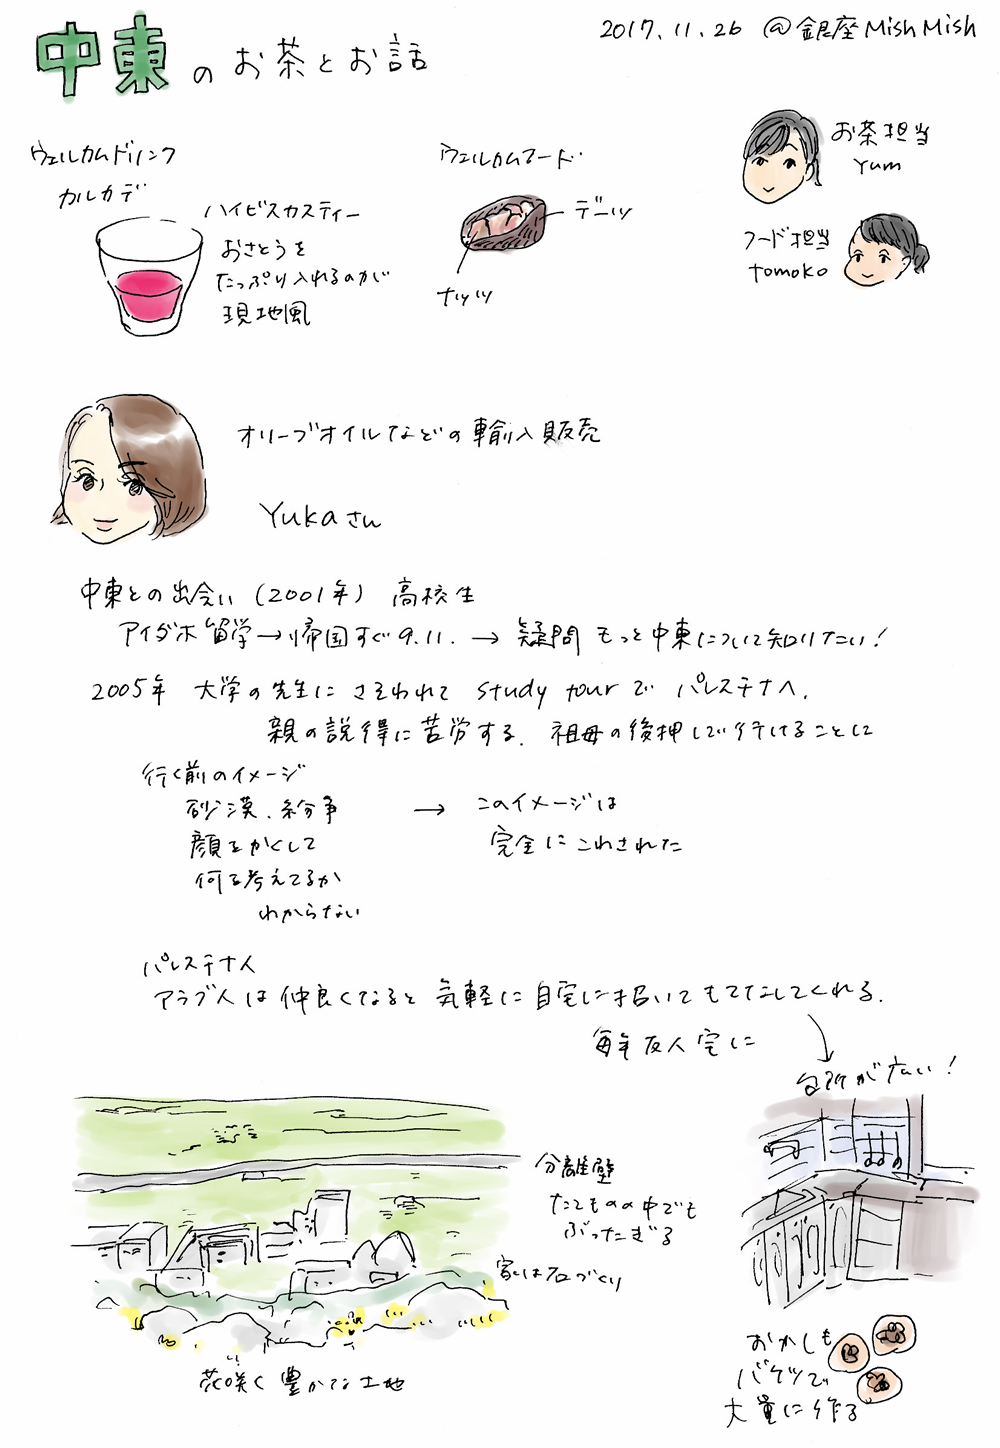 中東のお茶とお話
2017.11.26 @銀座MishMish
ウェルカムドリンク
カルカデ
ハイビスカスティー
おさとうを
たっぷり入れるのが
現地風
ウェルカムフード
デーツ
ナッツ
お茶担当
Yum
フード担当
tomoko
オリーブオイルなどの輸入販売
Yukaさん
中東との出会い (2001年) 高校生
アイダホ留学→帰国すぐ9.11. → 疑問 もっと中東について知りたい!
2005年 大学の先生にさそわれて study tourで パレスチナへ.
親の説得に苦労する. 祖母の後押しで行けることに
行く前のイメージ
砂漠、紛争
顔をかくして
何を考えてるか
わからない
→ このイメージは
完全にこわされた
パレスチナ人
アラブ人は仲良くなると気軽に自宅に招いてもてなしてくれる.
毎年友人宅に
台所が広い!
分離壁
たてものの中でも
ぶったぎる
家は石づくり
花咲く豊かな土地
おかしも
バケツで
大量に作る